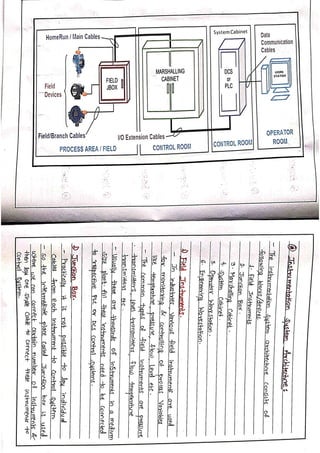 HomeRun / Main Cables
System Cabinet
Data
Communication
Cables
Field
Devices
FIELD
JBOX
MARSHALLING
CABINET
DCS
or
PLC
Field/Branch Cables
I/O Extension Cables
PROCESS AREA / FIELD
CONTROL ROOM
CONTROL ROOM
OPERATOR
ROOM
Instrumentation System Architecture :
- The instrumentation system architecture consists of
following items/devices
1. Field Instruments
2. Junction Box
3. Marshalling Cabinet
4. System Cabinet
5. Operator Workstation
6. Engineering Workstation.
1) Field Instrument:
- In industries various field instrument are used
for monitoring & controlling of process variables
like temperature, pressure, flow, level etc.
- The common types of field instruments are pressure
transmitters, level transmitters, flow, temperature
transmitters etc.
- Usually there are thousands of instruments in a medium
size plant. All these instruments need to be connected
to respective PLC or DCS control systems.
2) Junction Box:
- Practically it is not possible to lay individual
cables from each instrument to control system.
So the intermediate box called junction box is used
where we can connect certain number of instruments &
then lay one single cable to connect these instruments to
control system.